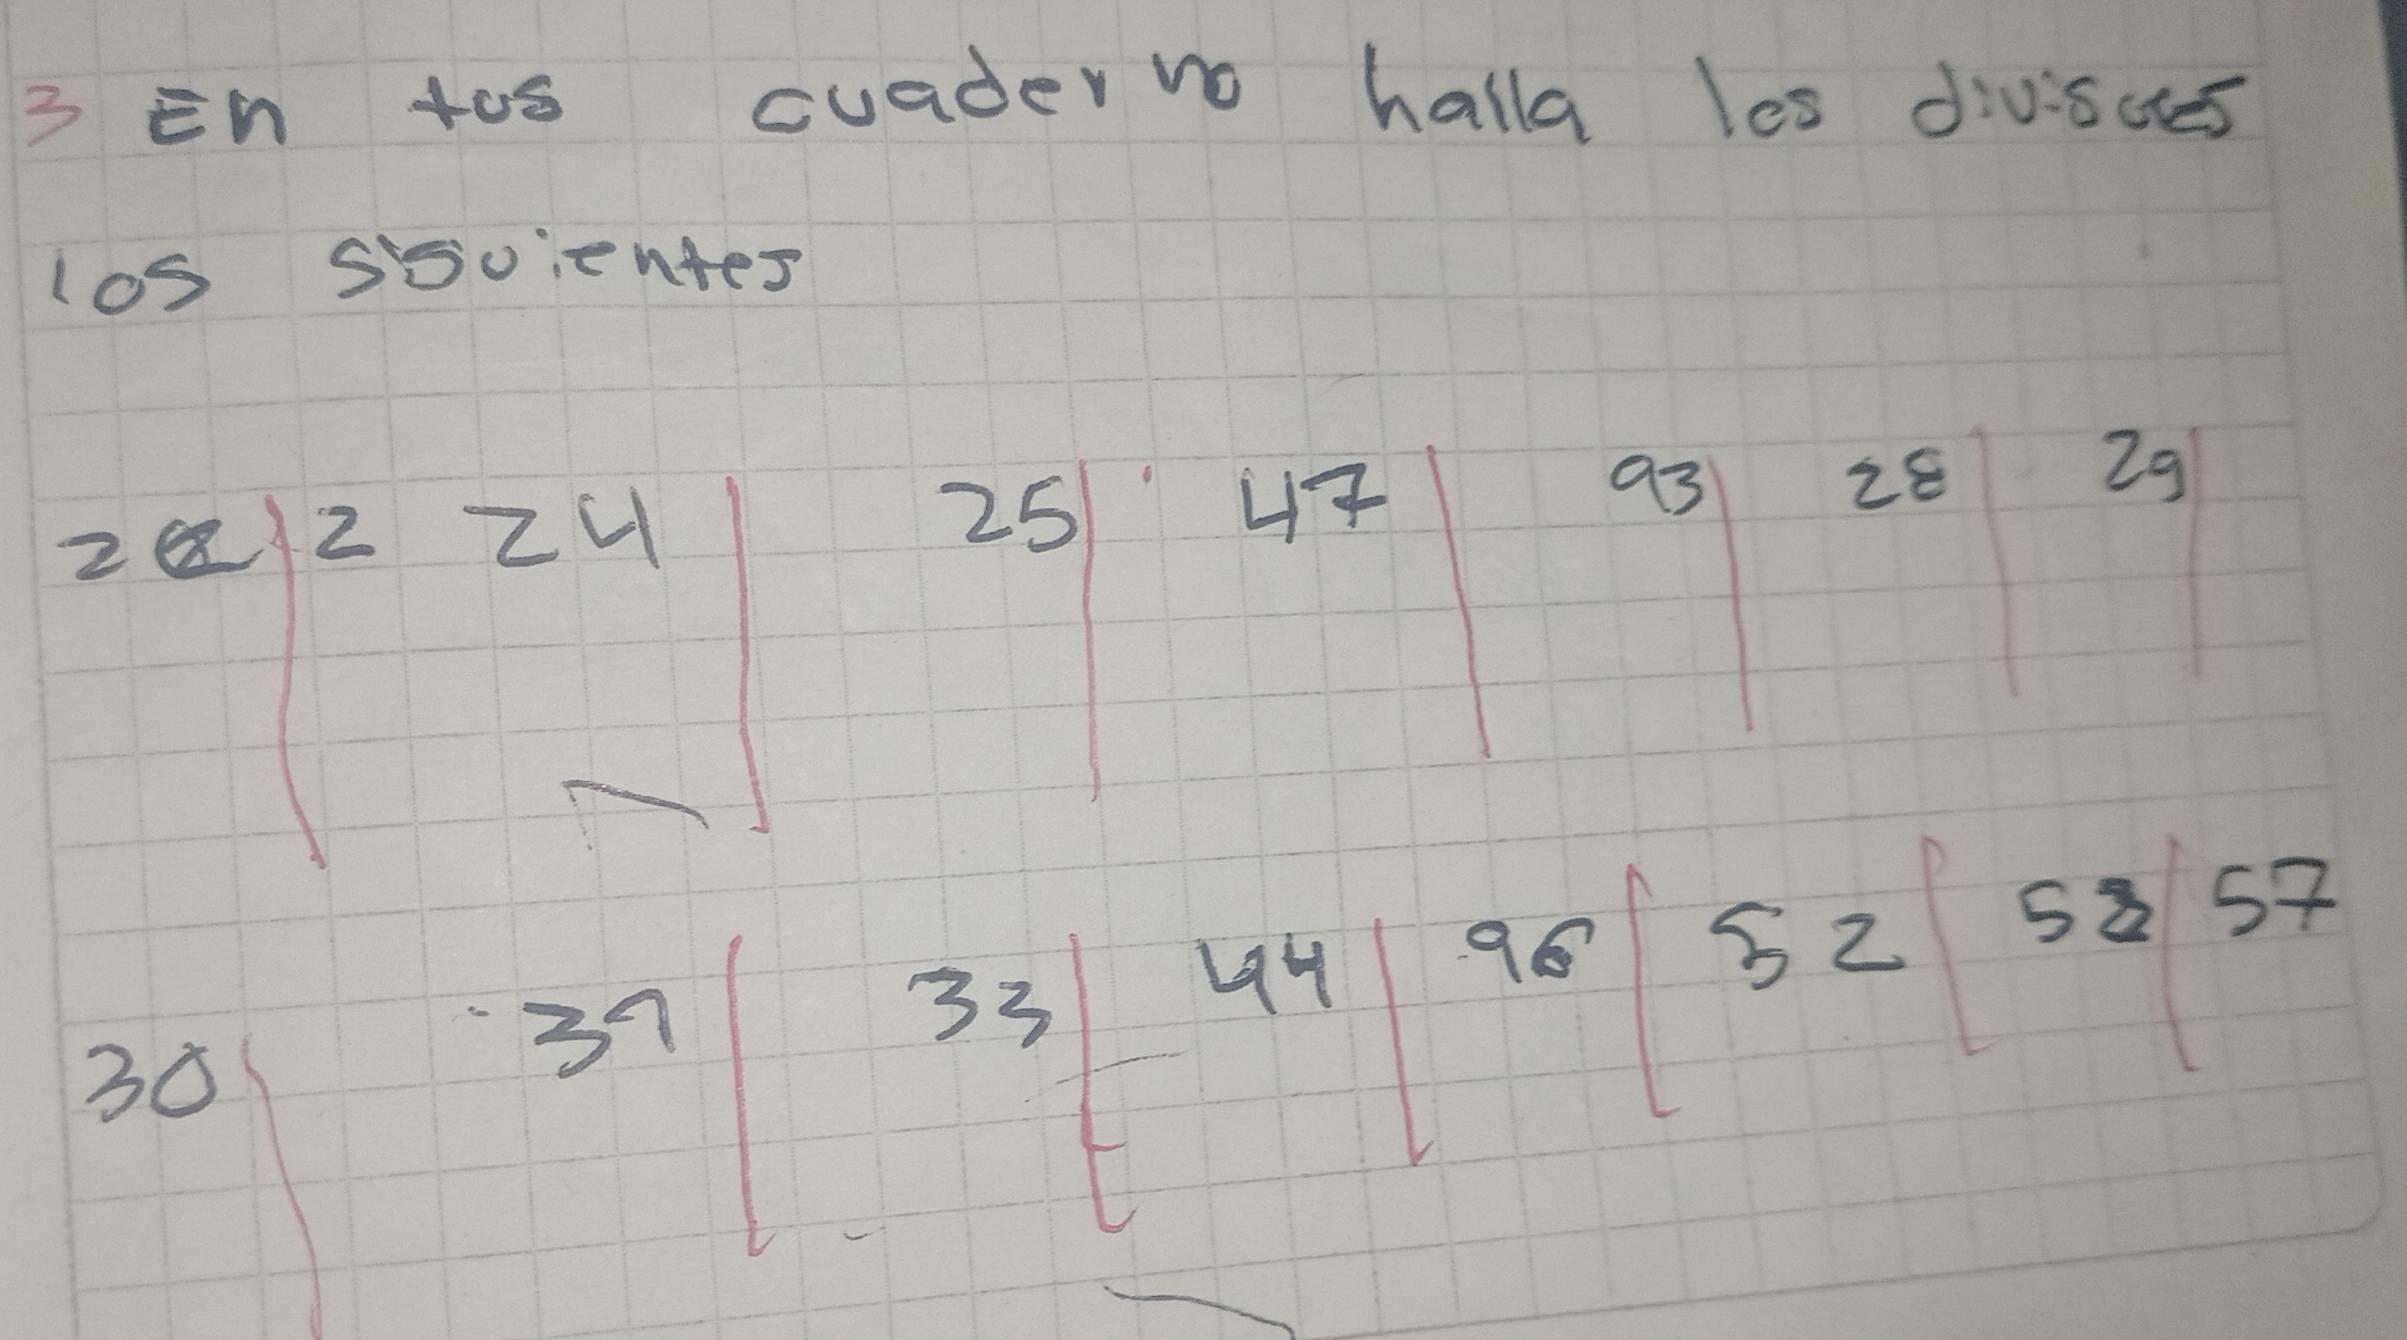 3 En tus cuaderno halla los divisores
los siguientes
22 2 24 25 47 93 28 29
30 31 33 44 96 52 53 57